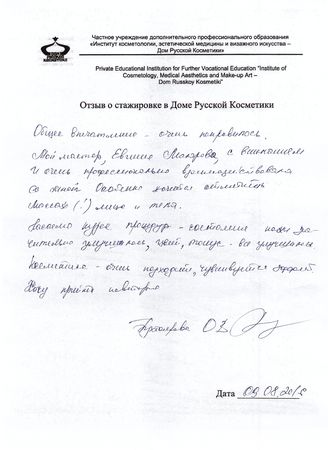 Частное учреждение дополнительного профессионального образования
«Институт косметологии, эстетической медицины и визажного искусства –
Дом Русской Косметики»
Private Educational Institution for Further Vocational Education "Institute of
Cosmetology, Medical Aesthetics and Make-up Art –
Dom Russkoy Kosmetiki"
Отзыв о стажировке в Доме Русской Косметики
Общее впечатление - очень понравилось.
Мой мастер, Евгения, с вниманием
И очень профессионально взаимодействовала
со мной. Особенно хочется отметить
массаж (!) лица и тела.
процедур - состояние кожи зна-
чительно улучшилось, цвет, тонус - все улучшилось
Косметика - очень подходит, чувствуется эффект.
Хочу прийти повторно
Дата 09.08.20